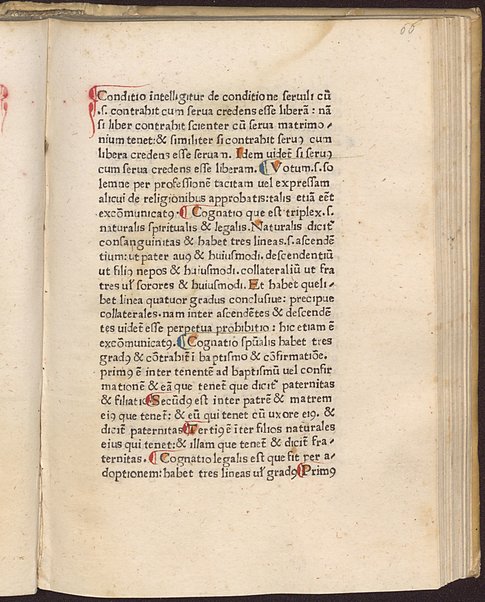 66
Conditio intelligitur de conditione seruili cū
.s. contrahit cum serua credens esse liberā: nā
si liber contrahit scienter cū serua matrimo⸗
nium tenet: & similiter si contrahit seruꝰ cum
libera credens esse seruam. Idem uidet̄ si seruꝰ
cum serua credens esse liberam. ¶ Votum .s. so
lemne per professionē tacitam uel expressam
alicui de religionibus approbatis: talis etiā eēt
excōmunicatꝰ. ¶ Cognatio que est triplex .s.
naturalis spiritualis & legalis. Naturalis dicit̄
consanguinitas & habet tres lineas .s. ascendē
tium: ut pater auꝰ & huiusmodi. descendentiū
ut filiꝰ nepos & huiusmodi. collateraliū ut fra
tres ul̄ sorores & huiusmodi. Et habet queli⸗
bet linea quatuor gradus conclusiue: precipue
collaterales. nam inter ascendētes & descendē
tes uidet̄ esse perpetua prohibitio: hic etiam ē
excōmunicatꝰ. ¶ Cognatio spūalis habet tres
gradꝰ & cōtrahit̄ i baptismo & cōfirmatiōe.
primꝰ ē inter tenentē ad baptismū uel confir
mationē & eā que tenet̄ que dicit̄ paternitas
& filiatio Secūdꝰ est inter patrē & matrem
eiꝰ que tenet̄: & eū qui tenet cū uxore eiꝰ. &
dicit̄ paternitas Tertiꝰ ē iter filios naturales
eius qui tenet: & illam que tenet̄ & dicit̄ fra⸗
ternitas. ¶ Cognatio legalis est que fit per a⸗
doptionem: habet tres lineas ul̄ gradꝰ Primꝰ